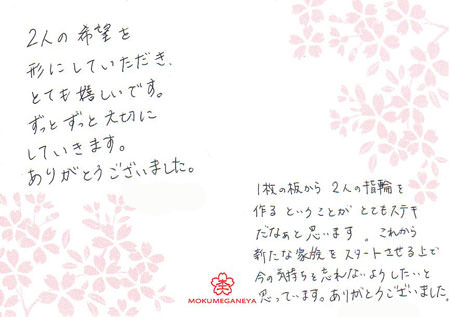 2人の希望を
形にしていただき、
とても嬉しいです。
ずっとずっと大切に
していきます。
ありがとうございました。
1枚の板から 2人の指輪を
作る ということが とてもステキ
だなぁと思います。これから
新たな家族をスタートさせる上で
今の気持ちを忘れないようしたいと
思っています。ありがとうございました。
MOKUMEGANEYA